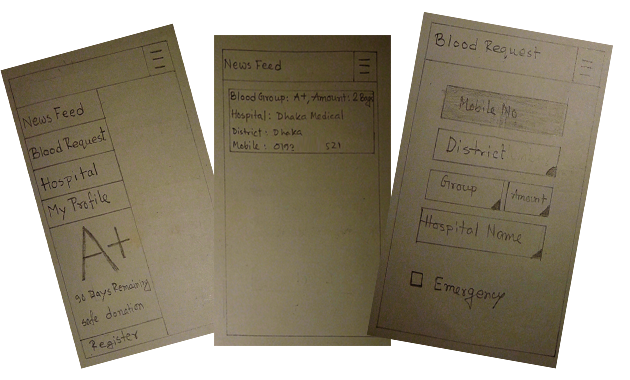 News Feed
Blood Request
Hospital
My Profile
A+
90 Days Remaining
safe donation
Register
News Feed
Blood Group: A+, Amount: 2 Bags
Hospital: Dhaka Medical
District: Dhaka
Mobile: 521
Blood Request
Mobile No
District
Group Amount
Hospital Name
Emergency